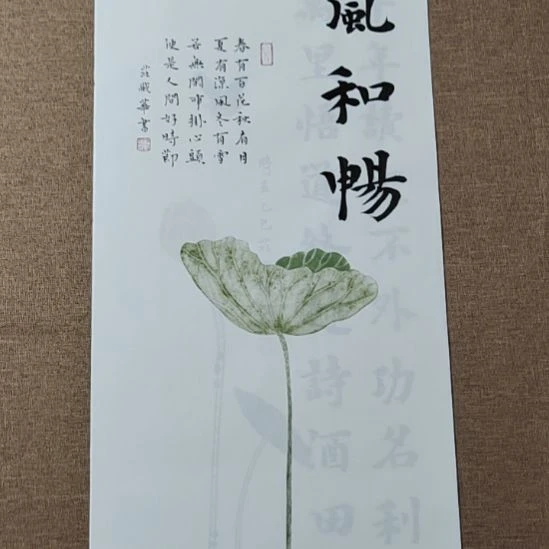 風和暢
春有百花秋有月
夏有涼風冬有雪
若無閒事掛心頭
便是人間好時節
華書
年讀不外功名利
里悟道詩酒田